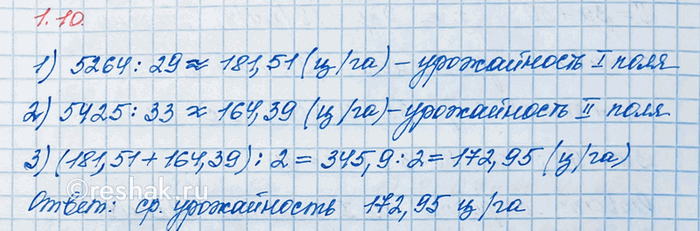 1.10.
1) 5264 : 29 ≈ 181,51 (ц/га) – урожайность I поля
2) 5425 : 33 ≈ 164,39 (ц/га) – урожайность II поля
3) (181,51 + 164,39) : 2 = 345,9 : 2 = 172,95 (ц/га)
Ответ: ср. урожайность 172,95 ц/га
©reshak.ru